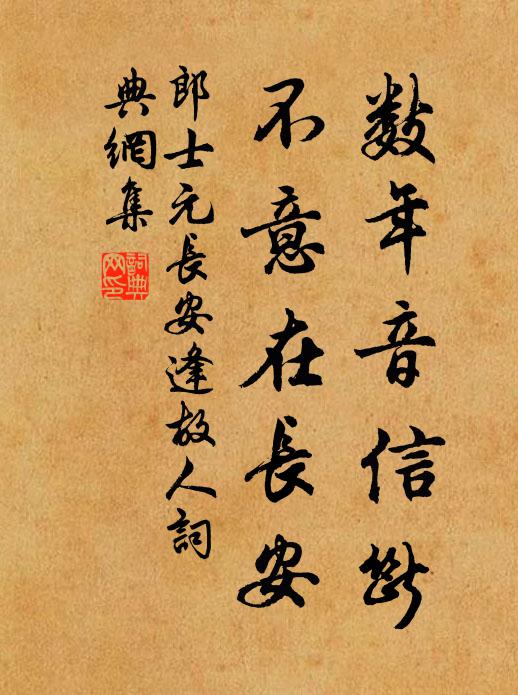 數年音信斷
不意在長安
郎士元長安逢故人詞
典網集
詞典網印